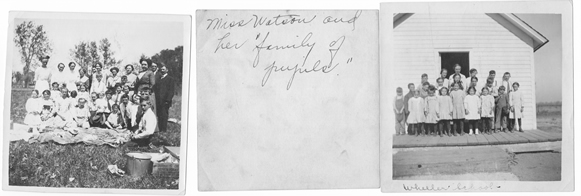 Miss Watson and
her "family of
pupils."
Wheeler School